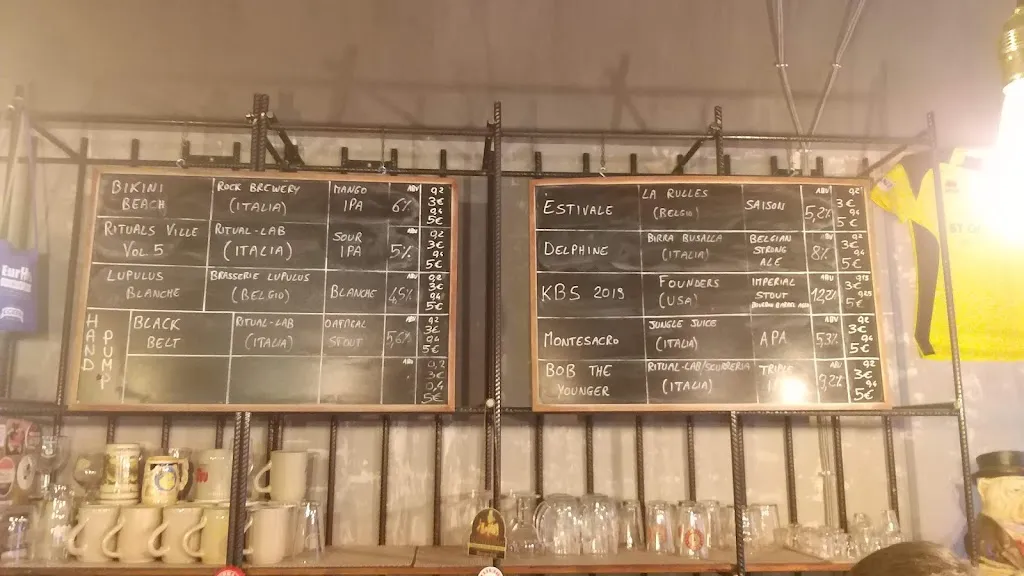 BIKINI BEACH ROCK BREWERY (ITALIA) MANGO IPA ABV 6% 0,2 3€ 0,4 5€
RITUALS VILLE VOL.5 RITUAL-LAB (ITALIA) SOUR IPA ABV 5% 0,2 3€ 0,4 5€
LUPULUS BLANCHE BRASSERIE LUPULUS (BELGIO) BLANCHE ABV 4,5% 0,2 3€ 0,4 5€
HAND PUMP
BLACK BELT RITUAL-LAB (ITALIA) OATMEAL STOUT ABV 5,6% 0,2 3€ 0,4 5€
ABV 0,2 3€ 0,4 5€
ESTIVALE LA RULLES (BELGIO) SAISON ABV 5,2% 0,2 3€ 0,4 5€
DELPHINE BIRRA BUSALLA (ITALIA) BELGIAN STRONG ALE ABV 8% 0,2 3€ 0,4 5€
KBS 2019 FOUNDERS (USA) IMPERIAL STOUT BOURBON BARREL AGED ABV 12,2% 3€ 5€
MONTESACRO JUNGLE JUICE (ITALIA) APA ABV 5,3% 0,2 3€ 0,4 5€
BOB THE YOUNGER RITUAL-LAB/SCURRERIA (ITALIA) TRIPLE ABV 9,2% 0,2 5€ 0,4 5€